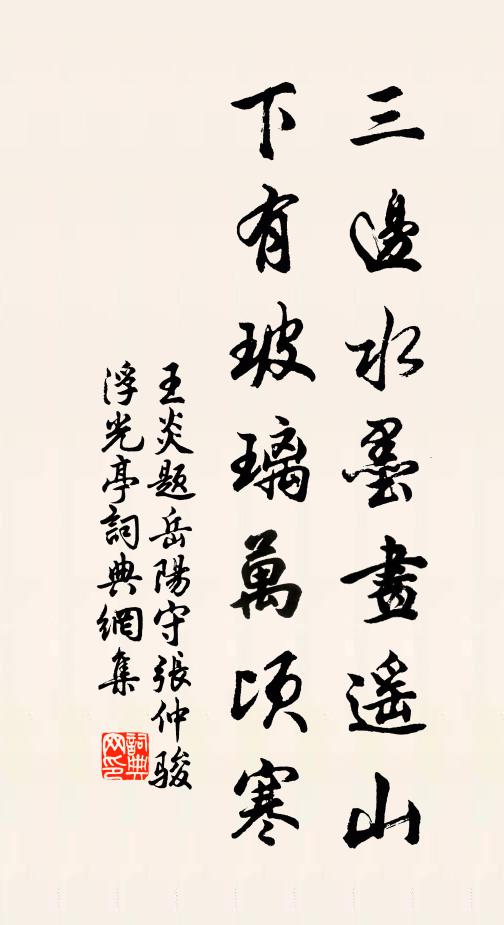 三邊水墨畫遥山
下有玻璃萬頃寒
王炎題岳陽守張仲駿
浮光亭詞典網集
詞典網印